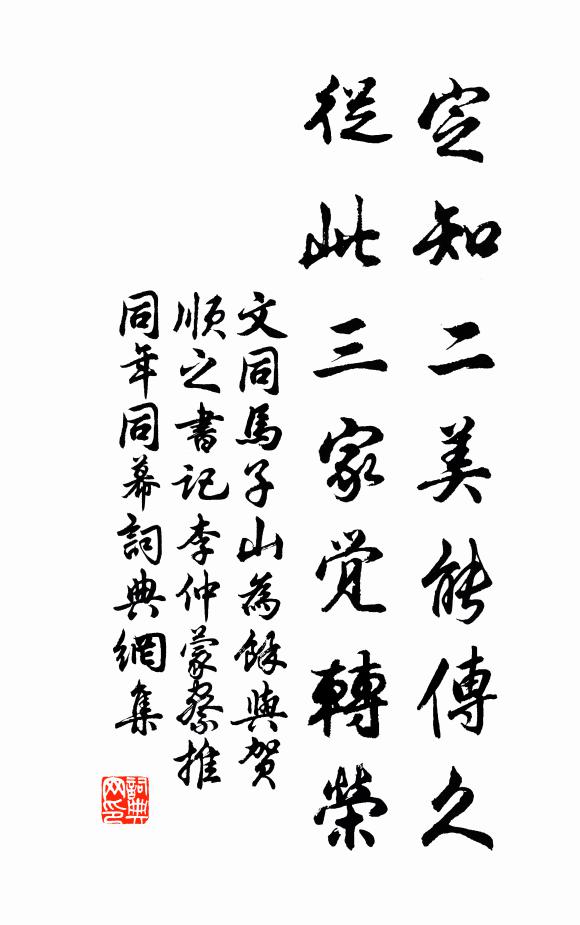 定知二美能傳久
從此三家覚轉榮
文同馬子山為餘與賀
順之書記李仲蒙察推
同年同幕詞典網集
詞典
网印